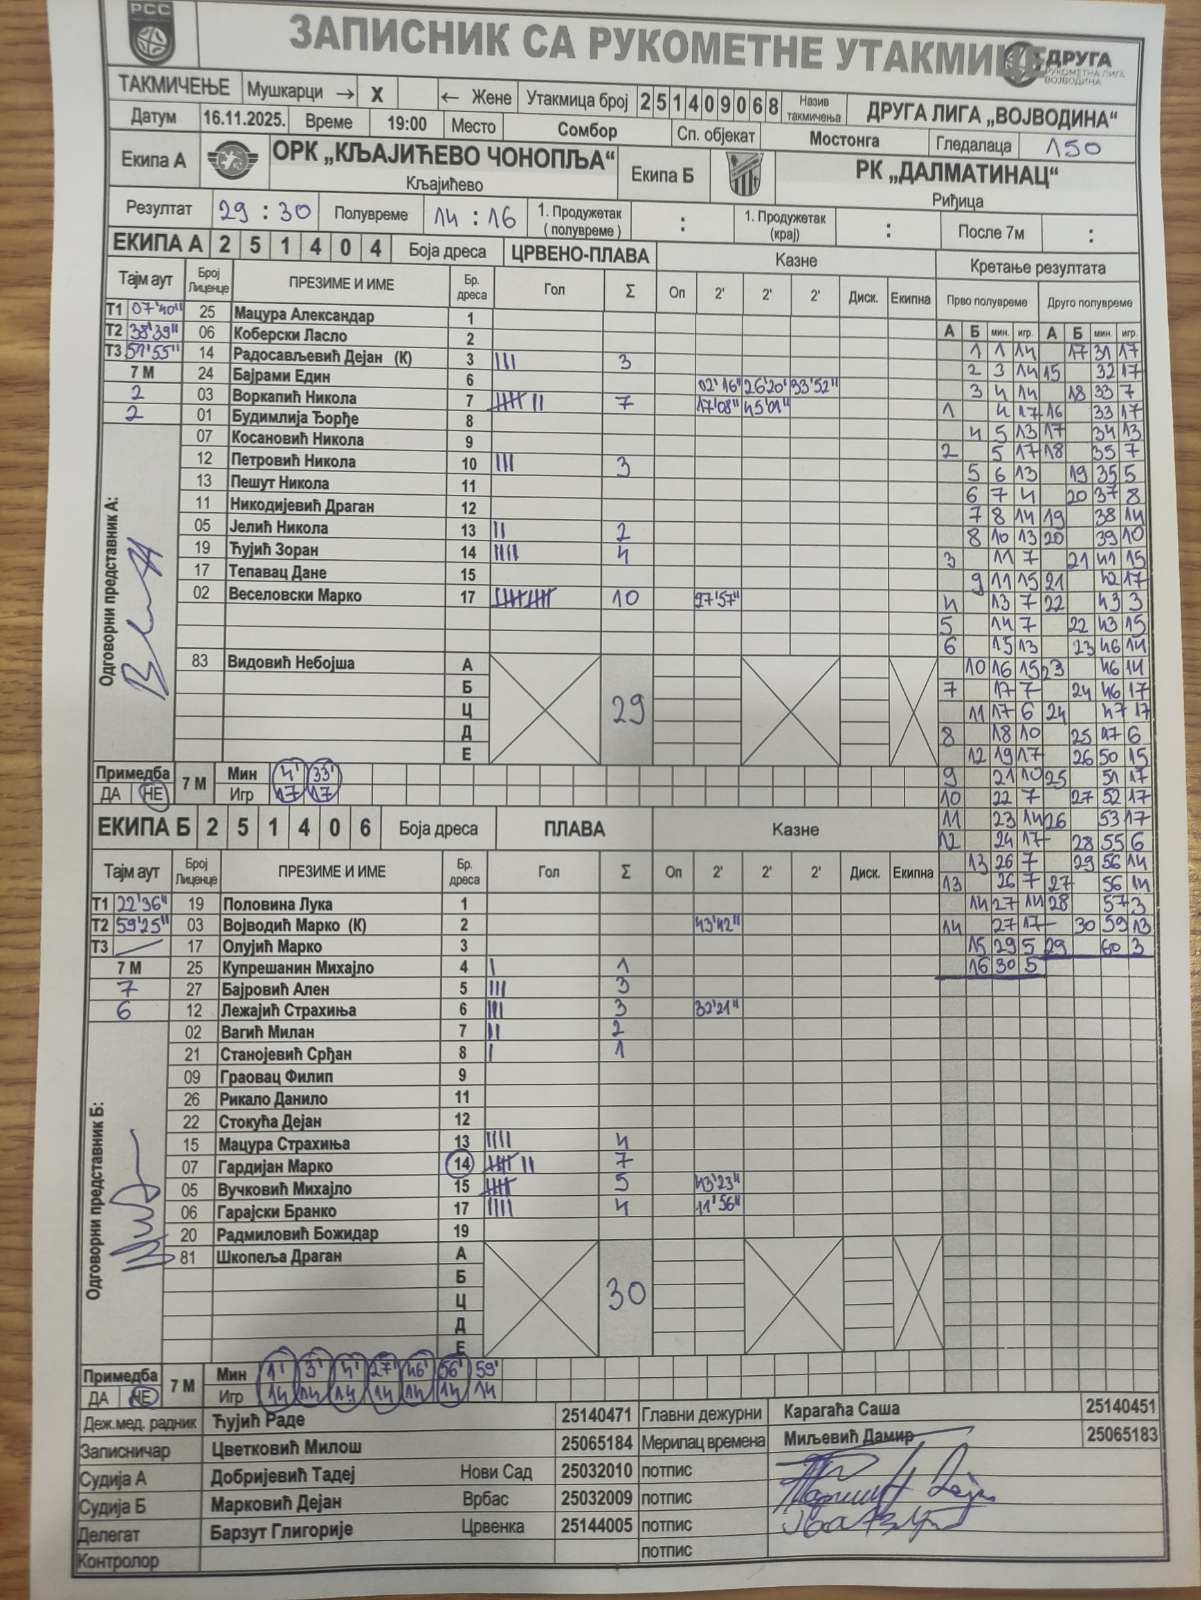 РСС
ЗАПИСНИК СА РУКОМЕТНЕ УТАКМИЦЕ
ДРУГА
РУКОМЕТНА ЛИГА
ВОЈВОДИНА
ТАКМИЧЕЊЕ Мушкарци → X ← Жене Утакмица број 2 5 1 4 0 9 0 6 8 Назив такмичења ДРУГА ЛИГА „ВОЈВОДИНА“
Датум 16.11.2025. Време 19:00 Место Сомбор Сп. објекат Мостонга Гледалаца 150
Екипа А ОРК „КЉАЈИЋЕВО ЧОНОПЉА“ Екипа Б РК „ДАЛМАТИНАЦ“
Кљајићево Риђица
Резултат 29 : 30 Полувреме 14 : 16 1. Продужетак (полувреме) : 1. Продужетак (крај) : После 7м :
ЕКИПА А 2 5 1 4 0 4 Боја дреса ЦРВЕНО-ПЛАВА Казне Кретање резултата
Тајм аут Број Лиценце ПРЕЗИМЕ И ИМЕ Бр. дреса Гол Σ Оп 2' 2' 2' Диск. Екипна Прво полувреме Друго полувреме
А Б мин. игр. А Б мин. игр.
T1 07'40" 25 Мацура Александар 1
T2 38'39" 06 Коберски Ласло 2
T3 51'55" 14 Радосављевић Дејан (К) 3 III 3
7 М 24 Бајрами Един 6 02'16" 26'20" 33'52"
2 03 Воркапић Никола 7 IIIII II 7 17'08" 45'01"
2 01 Будимлија Ђорђе 8
07 Косановић Никола 9
12 Петровић Никола 10 III 3
13 Пешут Никола 11
11 Никодијевић Драган 12
05 Јелић Никола 13 II 2
19 Ћујић Зоран 14 IIII 4
17 Тепавац Дане 15
02 Веселовски Марко 17 IIIII IIIII 10 27'57"
Одговорни представник А:
83 Видовић Небојша А
Б
Ц
Д
Е
29
1 1 14 17 31 17
2 3 14 15 32 17
3 4 14 18 33 7
1 4 17 16 33 17
4 5 13 17 34 13
2 5 17 18 35 7
5 6 13 19 35 5
6 7 4 20 37 8
7 8 14 19 38 14
8 10 13 20 39 10
3 11 7 21 41 15
9 11 15 21 42 17
4 13 7 22 43 3
5 14 7 22 43 15
6 15 13 23 46 14
10 16 15 23 46 14
7 17 7 24 46 17
11 17 6 24 47 17
8 18 10 25 47 6
12 19 17 26 50 15
9 21 10 25 51 17
10 22 7 27 52 17
11 23 14 26 53 17
12 24 17 28 55 6
13 26 7 29 56 14
13 26 7 27 56 14
14 27 14 28 57 3
14 27 17 30 59 13
15 29 5 29 60 3
16 30 5
Примедба ДА НЕ 7 М Мин 4' 33'
Игр 17 17
ЕКИПА Б 2 5 1 4 0 6 Боја дреса ПЛАВА Казне
Тајм аут Број Лиценце ПРЕЗИМЕ И ИМЕ Бр. дреса Гол Σ Оп 2' 2' 2' Диск. Екипна
T1 22'36" 19 Половина Лука 1
T2 59'25" 03 Војводић Марко (К) 2 43'42"
T3 17 Олујић Марко 3
7 М 25 Купрешанин Михајло 4 I 1
7 27 Бајровић Ален 5 III 3
6 12 Лежајић Страхиња 6 III 3 32'21"
02 Вагић Милан 7 II 2
21 Станојевић Срђан 8 I 1
09 Граовац Филип 9
26 Рикало Данило 11
22 Стокућа Дејан 12
15 Мацура Страхиња 13 IIII 4
07 Гардијан Марко 14 IIIII II 7
05 Вучковић Михајло 15 IIIII 5 43'23"
06 Гарајски Бранко 17 IIII 4 11'56"
20 Радмиловић Божидар 19
Одговорни представник Б:
81 Шкопеља Драган А
Б
Ц
Д
Е
30
Примедба ДА НЕ 7 М Мин 1' 3' 4' 27' 46' 56' 59'
Игр 14 14 14 14 14 14 14
Деж.мед. радник Ћујић Раде 25140471 Главни дежурни Карагаћа Саша 25140451
Записничар Цветковић Милош 25065184 Мерилац времена Миљевић Дамир 25065183
Судија А Добријевић Тадеј Нови Сад 25032010 потпис
Судија Б Марковић Дејан Врбас 25032009 потпис
Делегат Барзут Глигорије Црвенка 25144005 потпис
Контролор потпис